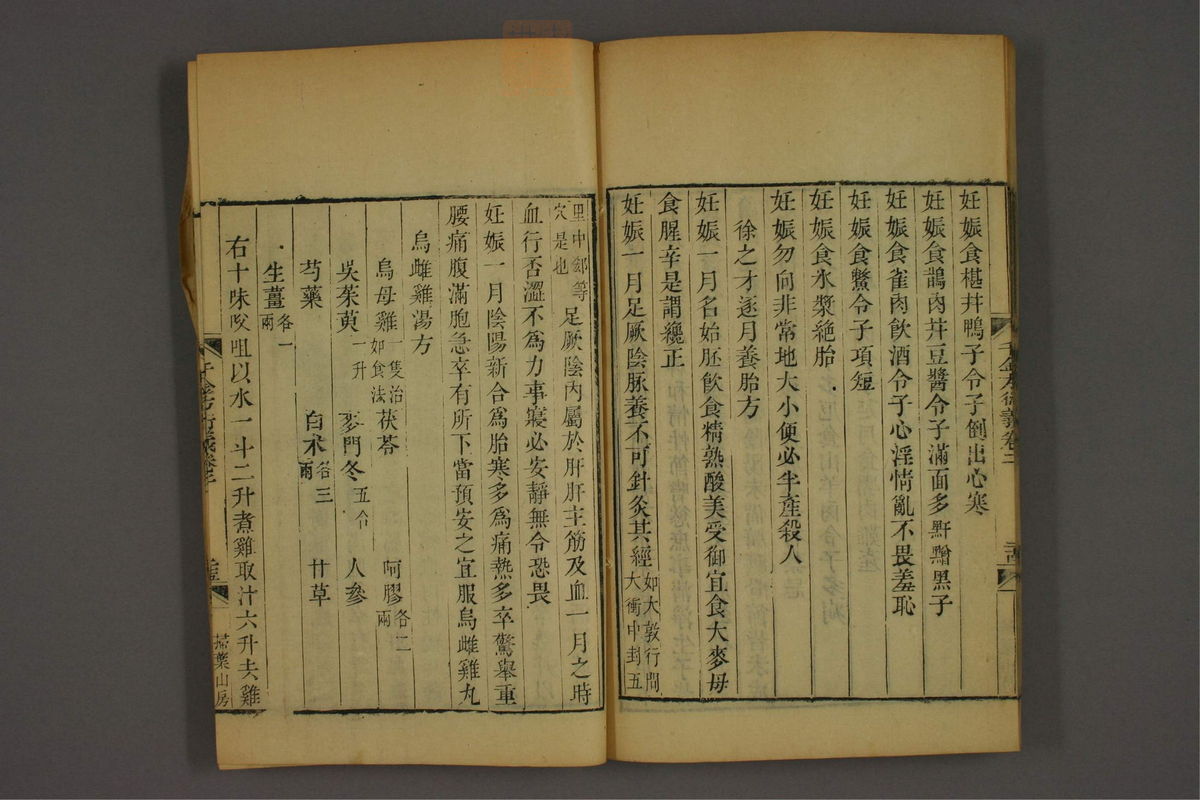 妊娠食椹幷鴨子令子倒出心寒
妊娠食鵲肉幷豆醬令子滿面多䵟䵴黑子
妊娠食雀肉飲酒令子心淫情亂不畏羞恥
妊娠食鱉令子項短
妊娠食氷漿絶胎
妊娠勿向非常地大小便必半產殺人
徐之才逐月養胎方
妊娠一月名始胚飲食精熟酸美受御宜食大麥毋
食腥辛是謂纔正
妊娠一月足厥陰脉養不可針灸其經如大敦行間大衝中封五
里中郄等穴是也足厥陰內屬於肝肝主筋及血一月之時
血行否澀不爲力事寢必安靜無令恐畏
妊娠一月陰陽新合爲胎寒多爲痛熱多卒驚舉重
腰痛腹滿胞急卒有所下當預安之宜服烏雌雞丸
烏雌雞湯方
烏母雞一隻治如食法 茯苓 阿膠各二兩
吳茱萸一升 麥門冬五合 人參
芍藥 白朮各三兩 甘草
生薑各一兩
右十味㕮咀以水一斗二升煮雞取汁六升去雞
千金方衍義卷二
掃葉山房